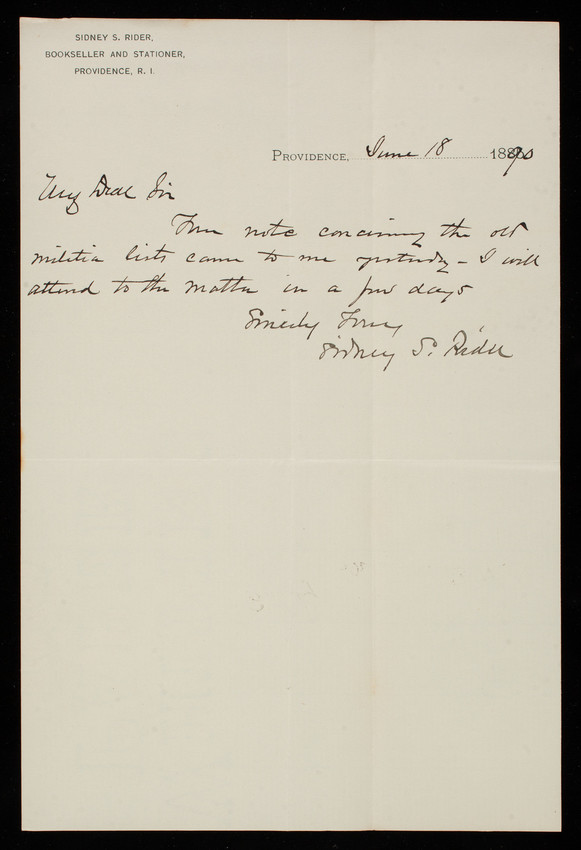 SIDNEY S. RIDER,
BOOKSELLER AND STATIONER,
PROVIDENCE, R. I.
PROVIDENCE, June 18 1890
My Dear Sir
Your note concerning the old
militia lists came to me yesterday – I will
attend to the matter in a few days
Sincerely Yours,
Sidney S. Rider